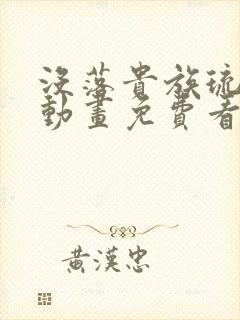 沒落貴族琉
動畫免費看
黃漢忠